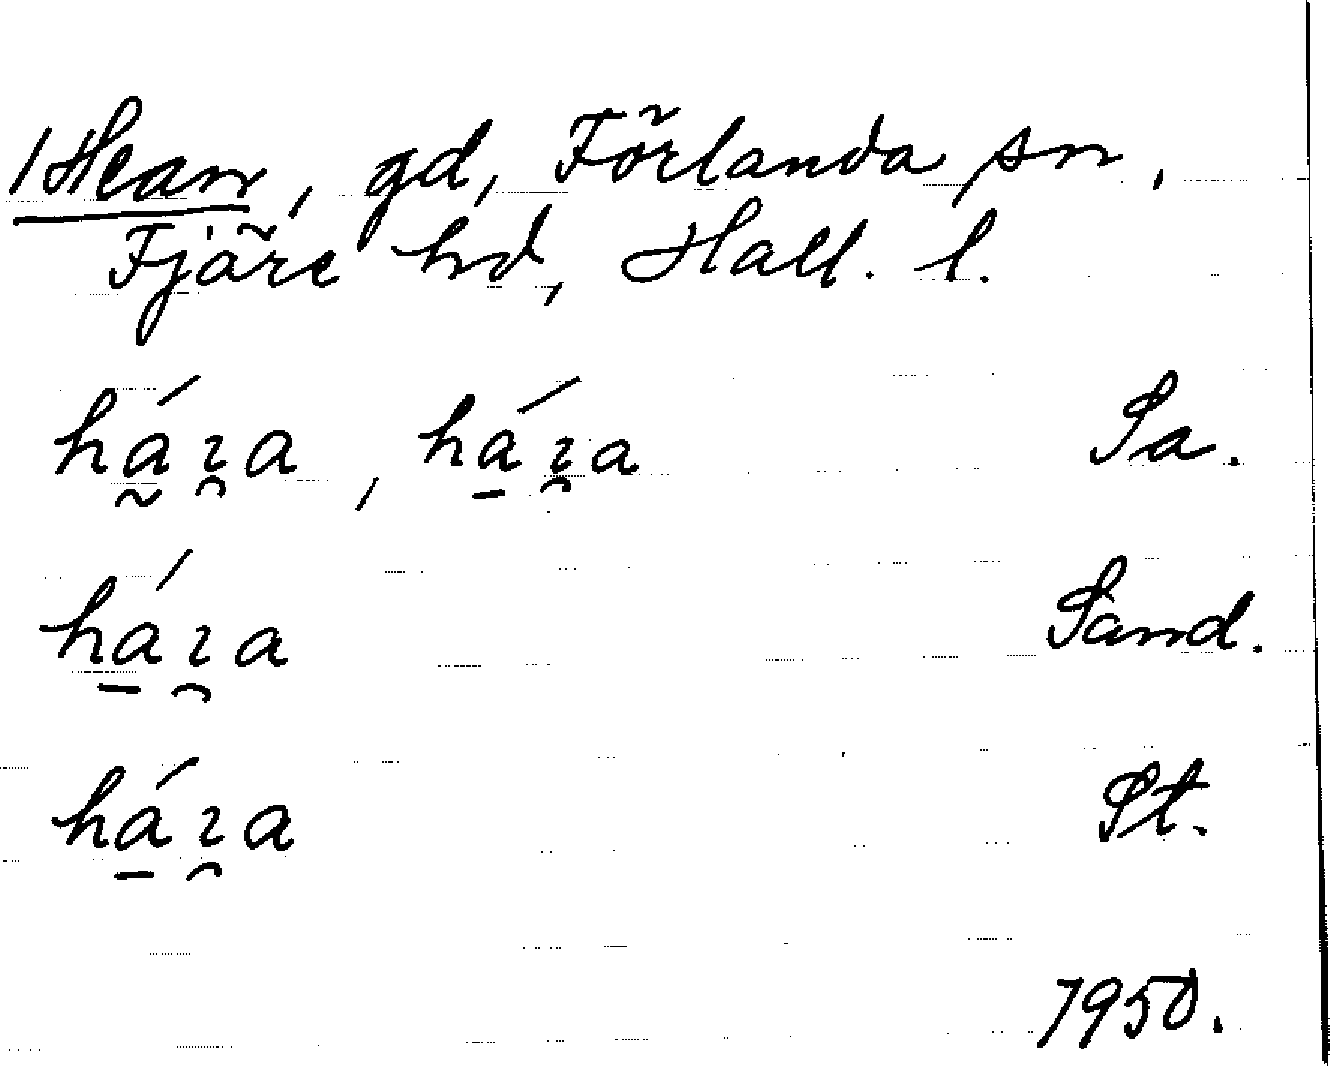 /Hean, gd, Förlanda sn,
Fjäre hd, Hall. l.
há̰ɿ̯a, há̱ɿ̯a Sa.
há̱ɿ̯a Sand.
há̱ɿ̯a St.
1950.